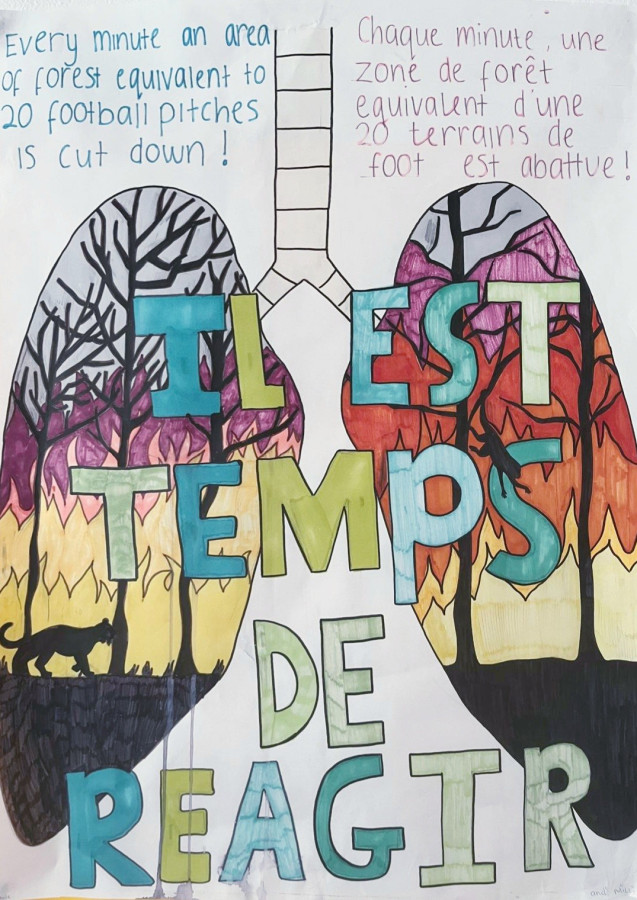 Every minute an area
of forest equivalent to
20 football pitches
is cut down !
Chaque minute, une
zone de forêt
equivalent d'une
20 terrains de
foot est abattue !
IL EST
TEMPS
DE
REAGIR